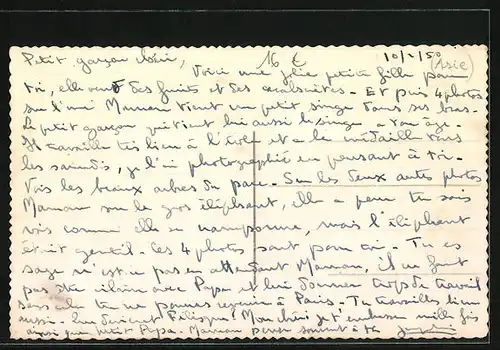 Petit garçon chéri, 16 € 10/1/50
Voici une jolie petite fille pour (Asie)
toi, elle vend des fruits et des cacahuètes - Et puis 4 photos
sur l'une Maman tient un petit singe dans ses bras -
Le petit garçon qui tient lui aussi le singe a ton âge -
Il travaille très bien à l'école et a la médaille tous
les samedis, je l'ai photographié en pensant à toi -
Vois les beaux arbres du parc - Sur les deux autres photos
Maman sur le gros éléphant, elle a peur tu sais
vois comme elle se cramponne, mais l'éléphant
était gentil - Ces 4 photos sont pour toi - Tu es
sage n'est-ce pas en attendant Maman, il ne faut
pas être vilain avec Papa et lui donner trop de travail
sans cela tu ne pourras revenir à Paris - Tu travailles bien
aussi - Mon chéri je t'embrasse mille fois
ainsi que petit Papa - Maman pense souvent à toi